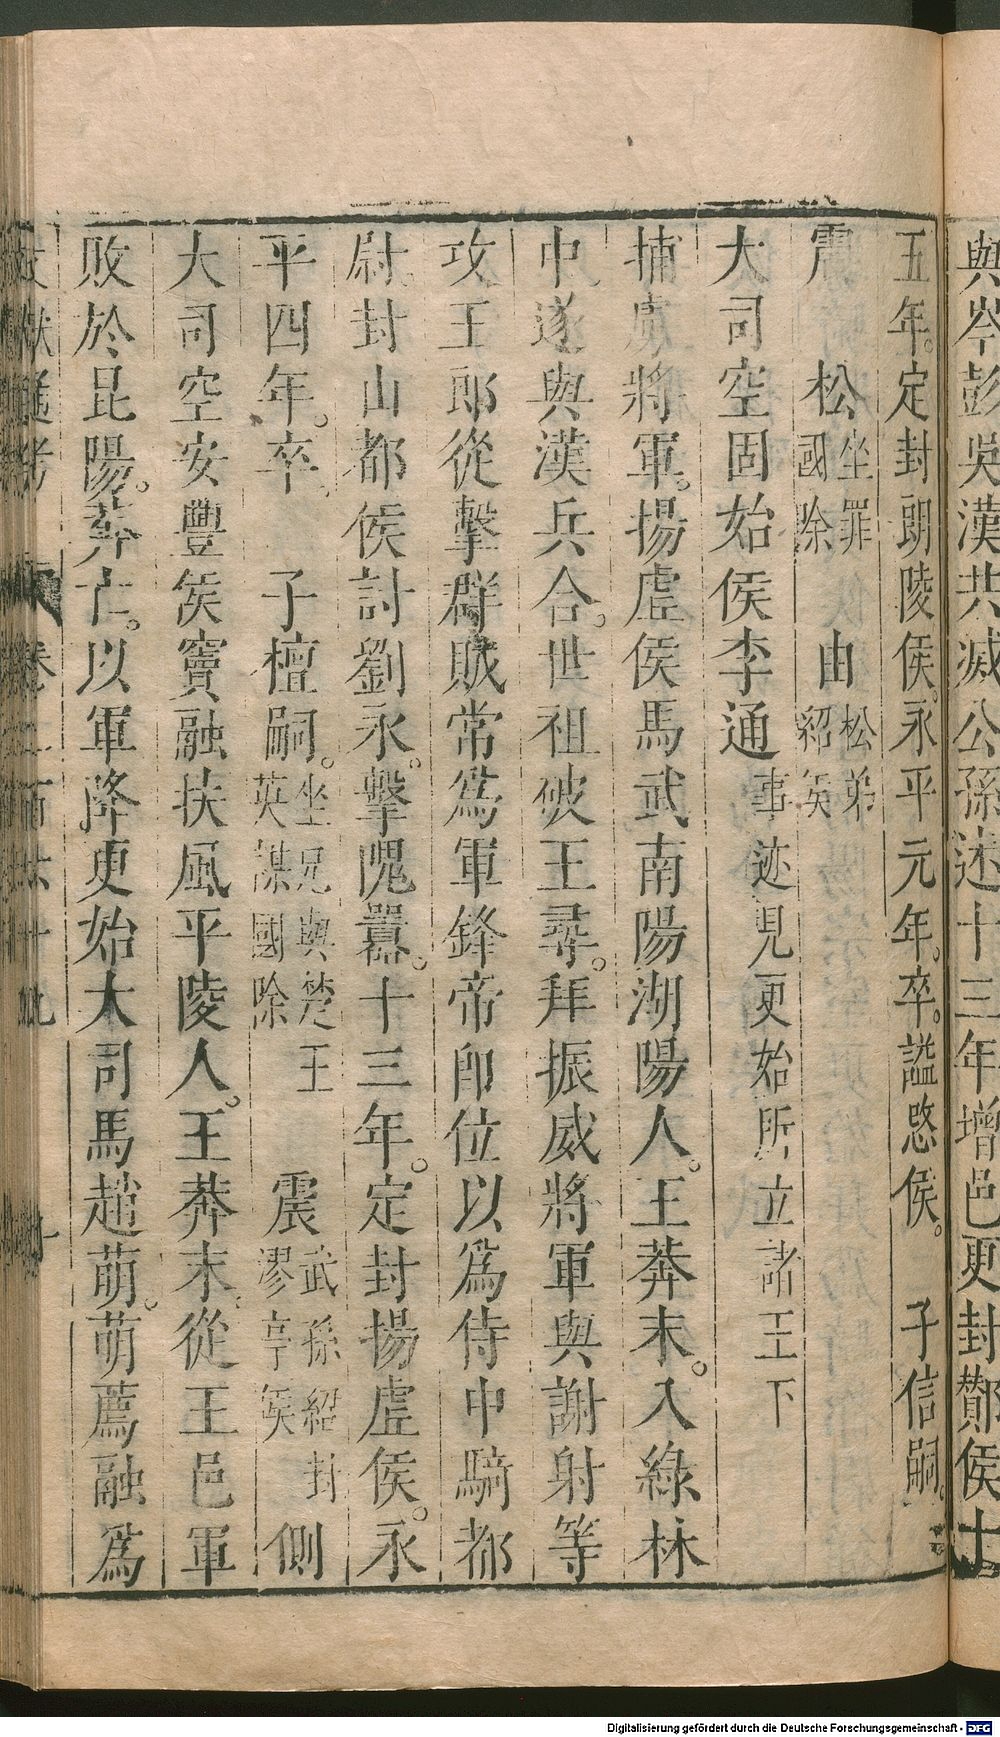 與岑彭吳漢共滅公孫述十三年增邑更封鄼侯十
五年。定封朗陵侯。永平元年。卒。謚愍侯。　子信嗣。
震　松坐罪國除　由松弟紹矦
大司空固始侯李通事迹見更始所立諸王下
捕虜將軍。揚虛侯馬武南陽湖陽人。王莽末。入綠林
中遂與漢兵合。世祖破王尋。拜振威將軍與謝射等
攻王郎從擊群賊常爲軍鋒帝卽位以爲侍中騎都
尉封山都侯討劉永。擊隗囂。十三年。定封揚虛侯。永
平四年。卒。　子檀嗣。坐兄與楚王英謀國除　震武孫紹封漻亭矦　側
大司空安豐矦竇融扶風平陵人。王莽末。從王邑軍
敗於昆陽。莽亡。以軍降更始大司馬趙萌。萌薦融爲
文獻通考　卷二百六十九
Digitalisierung gefördert durch die Deutsche Forschungsgemeinschaft - DFG